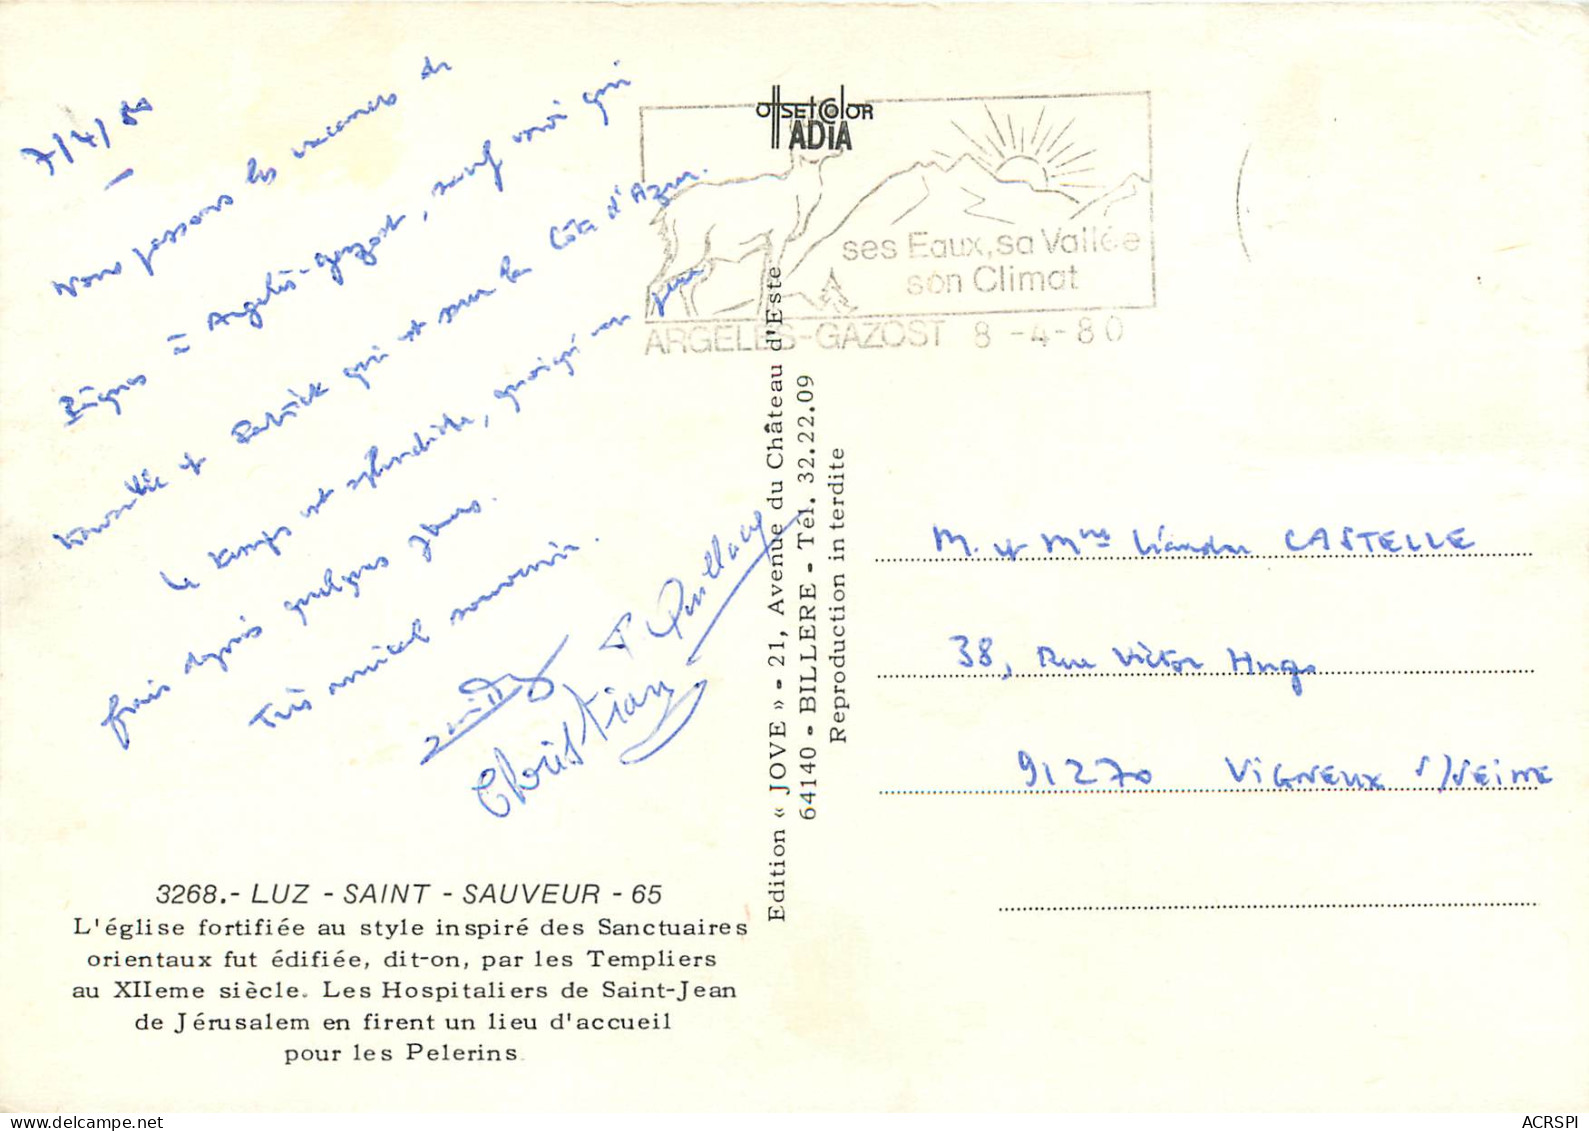 7/4/80
Nous passons les vacances de
Pâques à Argelès-Gazost, sauf moi qui
travaille et Patrick qui est sur la Côte d'Azur.
Le temps est splendide, quoiqu'un peu
frais depuis quelques jours.
Très amical souvenir.
Christian
OffsetColor
ADIA
ses Eaux, sa Vallée
son Climat
ARGELES-GAZOST 8 -4-80
Edition « JOVE » - 21, Avenue du Château d'Este
64140 - BILLERE - Tél. 32.22.09
Reproduction interdite
M. et Mme Liandre CASTELLE
38, Rue Victor Hugo
91270 VIGNEUX S/SEINE
3268.- LUZ - SAINT - SAUVEUR - 65
L'église fortifiée au style inspiré des Sanctuaires
orientaux fut édifiée, dit-on, par les Templiers
au XIIeme siècle. Les Hospitaliers de Saint-Jean
de Jérusalem en firent un lieu d'accueil
pour les Pelerins.
delcampe.net
ACRSPI